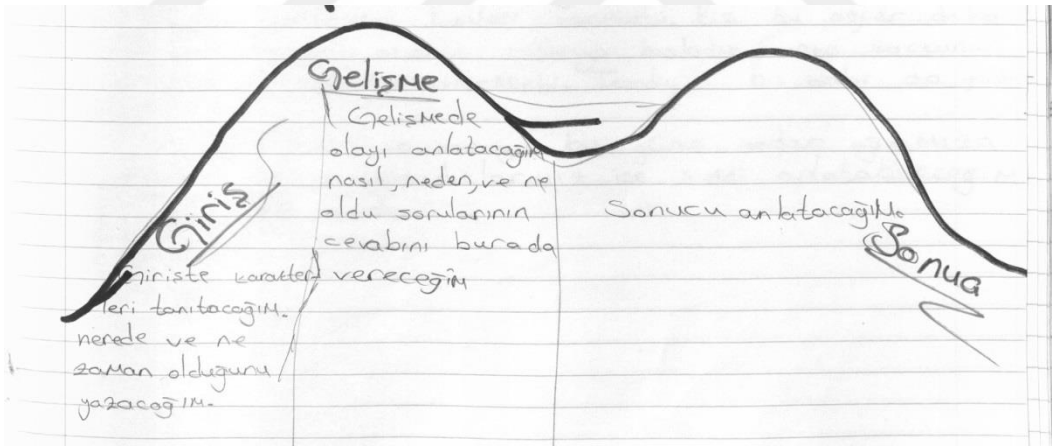 Giriş
Girişte karakter
leri tanıtacağım.
nerede ve ne
zaman olduğunu
yazacağım.
Gelişme
Gelişmede
olayı anlatacağım
nasıl, neden, ve ne
oldu sorularının
cevabını burada
vereceğim
Sonucu anlatacağım.
Sonuç